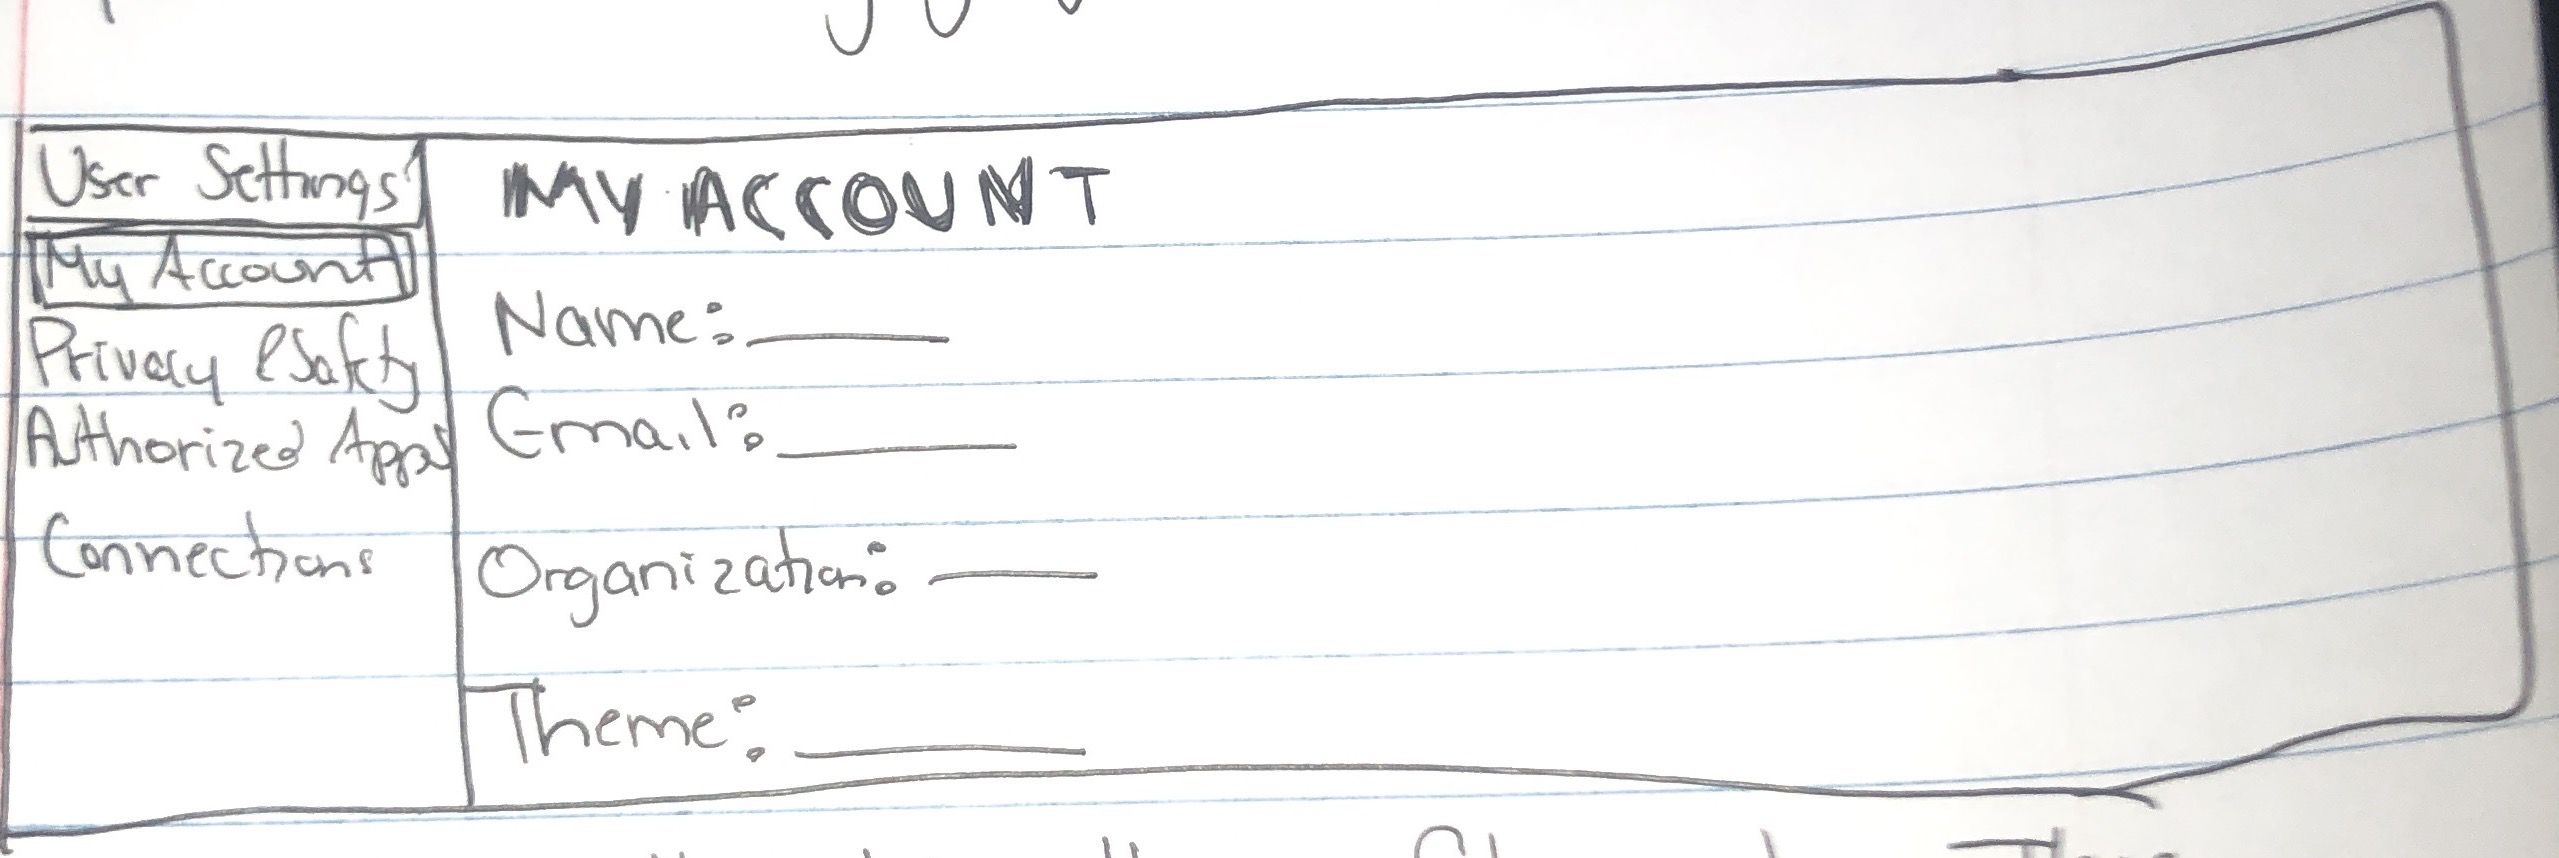 User Settings
My Account
Privacy & Safety
Authorized Apps
Connections
MY ACCOUNT
Name: ______
Email: ______
Organization: ______
Theme: ______